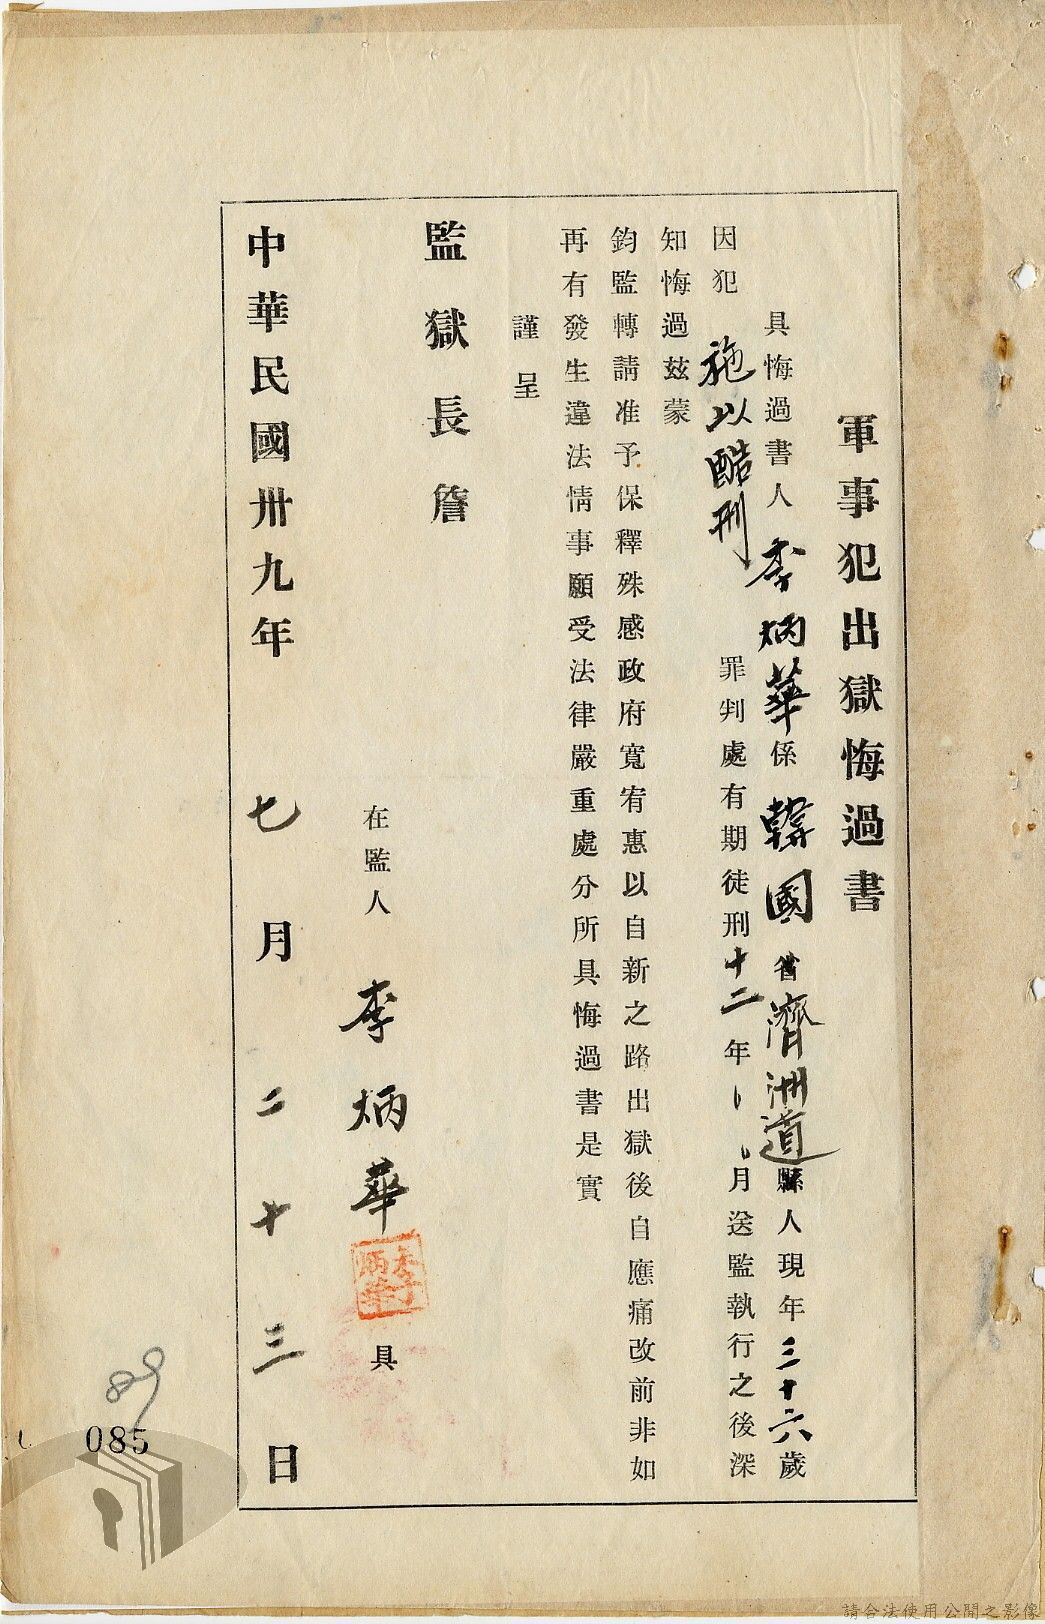 軍事犯出獄悔過書
具悔過書人李炳華係韓國省濟洲道縣人現年三十六歲
因犯施以酷刑罪判處有期徒刑十二年月送監執行之後深
知悔過茲蒙
鈞監轉請准予保釋殊感政府寬宥惠以自新之路出獄後自應痛改前非如
再有發生違法情事願受法律嚴重處分所具悔過書是實
謹呈
監獄長詹
在監人李炳華具
李炳華
中華民國卅九年七月二十三日
89
085
請合法使用公開之影像